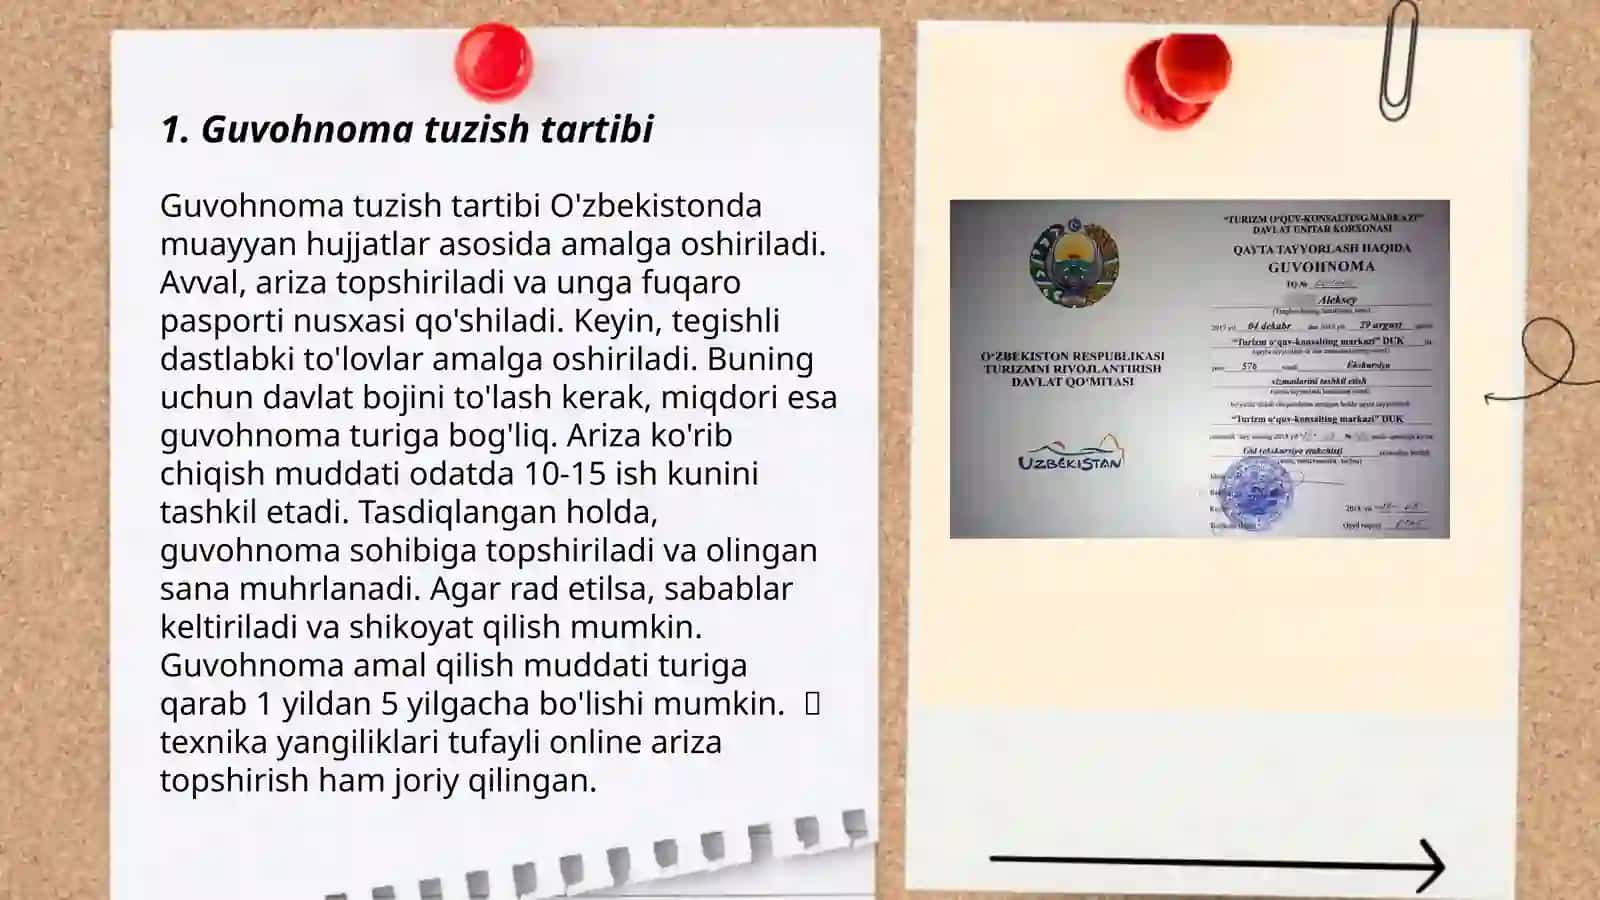 1. Guvohnoma tuzish tartibi
Guvohnoma tuzish tartibi O'zbekistonda
muayyan hujjatlar asosida amalga oshiriladi.
Avval, ariza topshiriladi va unga fuqaro
pasporti nusxasi qo'shiladi. Keyin, tegishli
dastlabki to'lovlar amalga oshiriladi. Buning
uchun davlat bojini to'lash kerak, miqdori esa
guvohnoma turiga bog'liq. Ariza ko'rib
chiqish muddati odatda 10-15 ish kunini
tashkil etadi. Tasdiqlangan holda,
guvohnoma sohibiga topshiriladi va olingan
sana muhrlanadi. Agar rad etilsa, sabablar
keltiriladi va shikoyat qilish mumkin.
Guvohnoma amal qilish muddati turiga
qarab 1 yildan 5 yilgacha bo'lishi mumkin.
texnika yangiliklari tufayli online ariza
topshirish ham joriy qilingan.
O‘ZBEKISTON RESPUBLIKASI
TURIZMNI RIVOJLANTIRISH
DAVLAT QO‘MITASI
UZBEKISTAN
“TURIZM O‘QUV-KONSALTING MARKAZI”
DAVLAT UNITAR KORXONASI
QAYTA TAYYORLASH HAQIDA
GUVOHNOMA
Aleksey
2017 yil 04 dekabr dan 2018 yil 29 avgust
“Turizm o‘quv-konsalting markazi” DUK
576 Ekskursiya
xizmatlarini tashkil etish
“Turizm o‘quv-konsalting markazi” DUK
2018 yil